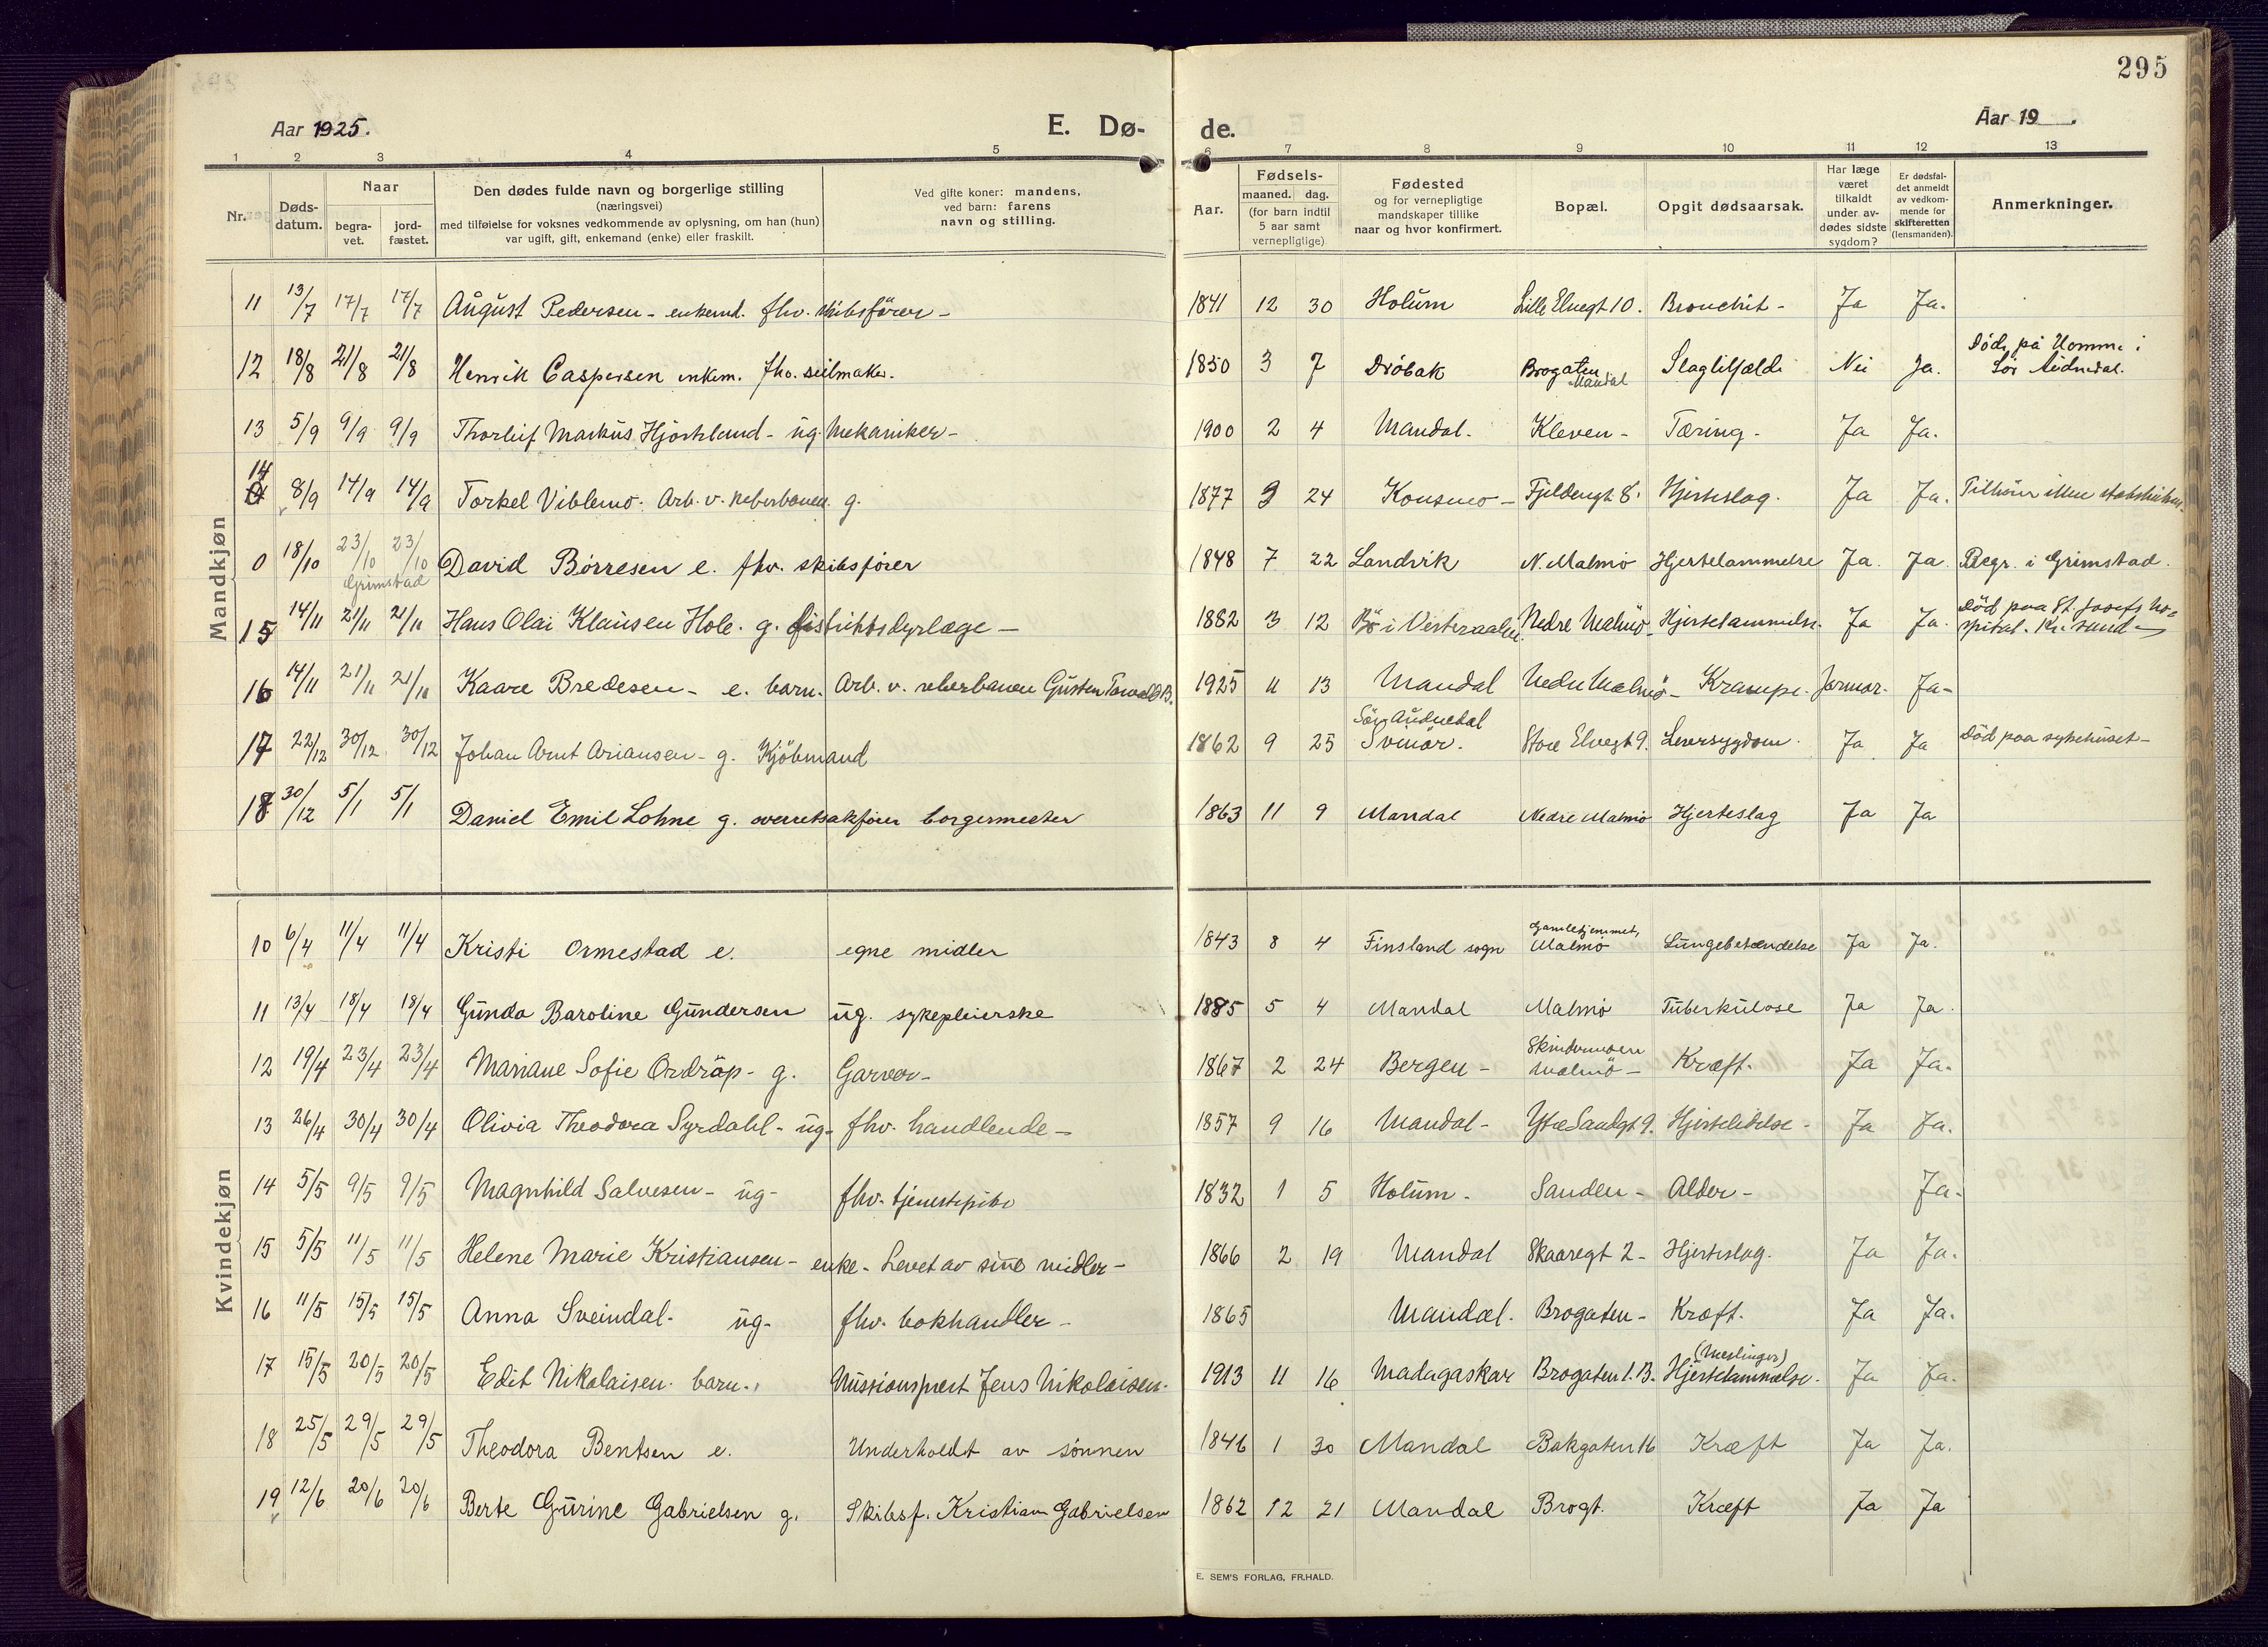 295
Aar 1925.
E. Dø-
de.
Aar 19
1 2 3 4 5 6 7 8 9 10 11 12 13
Nr.
Døds-
datum.
Naar
begra-
vet.
jord-
fæstet.
Den dødes fulde navn og borgerlige stilling
(næringsvei)
med tilføielse for voksnes vedkommende av oplysning, om han (hun)
var ugift, gift, enkemand (enke) eller fraskilt.
Ved gifte koner: mandens,
ved barn: farens
navn og stilling.
Aar.
Fødsels-
maaned. dag.
(for barn indtil
5 aar samt
vernepligtige)
Fødested
og for vernepligtige
mandskaper tillike
naar og hvor konfirmert.
Bopæl.
Opgit dødsaarsak.
Har læge
været
tilkaldt
under av-
dødes sidste
sygdom?
Er dødsfal-
det anmeldt
av vedkom-
mende for
skifteretten
(lensmanden).
Anmerkninger.
Mandkjøn
11 13/7 17/7 17/7 August Pedersen - enkemd. fhv. skibsfører - 1841 12 30 Holum Lille Elvegt 10. Bronchit - Ja Ja.
12 18/8 21/8 21/8 Henrik Caspersen enkem. fhv. seilmaker. 1850 3 7 Drøbak Brogaten Mandal Slagtilfælde Nei Ja. Død på Homme i
Sør Audnedal.
13 5/9 9/9 9/9 Thorleif Markus Hjorteland - ug. Mekaniker - 1900 2 4 Mandal. Kleven - Tæring - Ja Ja.
14 8/9 14/9 14/9 Torkel Viblemo. Arb. v. reberbanen. g. 1877 9 24 Konsmo - Fjeldengt. 8. Hjerteslag. Ja Ja. Tilhører ikke statskirken.
0 18/10 23/10 23/10 David Børresen e. fhv. skibsfører 1848 7 22 Landvik N. Malmø Hjertelammelse Ja. Ja. Begr. i Grimstad.
Grimstad
15 14/11 21/11 21/11 Hans Olai Klausen Hole. g. distriktsdyrlæge - 1882 3 12 Bø i Vesteraalen. Nedre Malmø - Hjertelammelse. Ja Ja. Død paa St. Josefs ho-
spital. Kr. sand -
16 14/11 21/11 21/11 Kaare Bredesen - e. barn. Arb. v. reberbanen Gusten Torvald B. 1925 11 13 Mandal Nedre Malmø - Krampe. Jormor. Ja -
17 22/12 30/12 30/12 Johan Arnt Ariansen - g. Kjøbmand 1862 9 25 Sør Audnedal
Svinør. Store Elvegt 9. Leversygdom. Ja Ja Død paa sykehuset -
18 30/12 5/1 5/1 Daniel Emil Lohne g. overretssakfører borgermester 1863 11 9 Mandal Nedre Malmø Hjerteslag Ja Ja
Kvindekjøn
10 6/4 11/4 11/4 Kristi Ormestad e. egne midler 1843 8 4 Finsland sogn Gamlehjemmet,
Malmø Lungebetændelse Ja Ja.
11 13/4 18/4 18/4 Gunda Baroline Gundersen ug. sykepleierske 1885 5 4 Mandal Malmø Tuberkulose Ja Ja.
12 19/4 23/4 23/4 Mariane Sofie Ordrup - g. Garver - 1867 2 24 Bergen -
Malmø - Kræft. Ja Ja.
13 26/4 30/4 30/4 Olivia Theodora Syrdahl - ug - fhv. handlende - 1857 9 16 Mandal - Ytre Sandgt 9. Hjertelidelse - Ja Ja.
14 5/5 9/5 9/5 Magnhild Salvesen - ug - fhv. tjenestepike 1832 1 5 Holum - Sanden - Alder - Ja -
15 5/5 11/5 11/5 Helene Marie Kristiansen - enke - Levet av sine midler - 1866 2 19 Mandal Skaaregt 2 - Hjerteslag. Ja Ja.
16 11/5 15/5 15/5 Anna Sveindal - ug - fhv. bokhandler - 1865 Mandal. Brogaten - Kræft. Ja Ja.
17 15/5 20/5 20/5 Edit Nikolaisen. barn. Missionsprest Jens Nikolaisen. 1913 11 16 Madagaskar Brogaten 1. B. (Meslinger)
Hjertelammelse. Ja Ja.
18 25/5 29/5 29/5 Theodora Bentsen e. Underholdt av sønnen 1846 1 30 Mandal Bakgaten 16 Kræft Ja Ja.
19 12/6 20/6 20/6 Berte Gurine Gabrielsen g. Skibsf. Kristian Gabrielsen 1862 12 21 Mandal Brogt. Kræft Ja Ja
E. SEM'S FORLAG, FR.HALD.